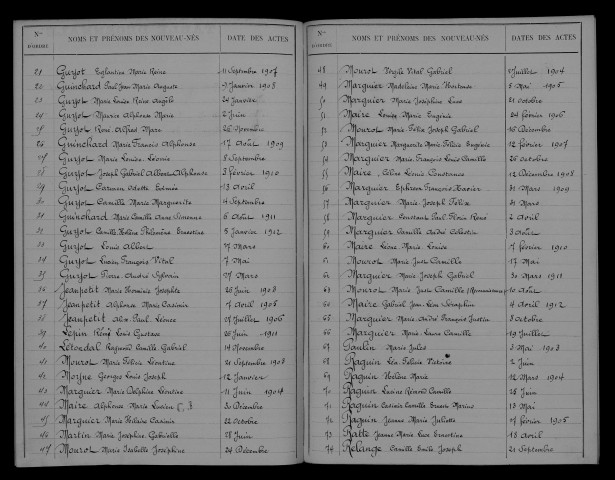 Nos D'ORDRE NOMS ET PRÉNOMS DES NOUVEAU-NÉS DATE DES ACTES
21 Guyot Eglantine Marie Reine 11 Septembre 1907
22 Guinchard Paul Jean Marie Auguste 9 Janvier 1908
23 Guyot Marie Louise Reine Angèle 24 Janvier
24 Guyot Maurice Alphonse Marie 2 Juin
25 Guyot René Alfred Marc 26 Novembre
26 Guinchard Marie François Alphonse 17 Août 1909
27 Guyot Marie Louise Léonie 8 Septembre
28 Guyot Joseph Gabriel Albert Alphonse 3 février 1910
29 Guyot Carmen Odette Edmée 13 Avril
30 Guyot Camille Marie Marguerite 4 Septembre
31 Guinchard Marie Camille Anne Simonne 6 Août 1911
32 Guyot Camille Hélène Philomène Ernestine 8 Janvier 1912
33 Guyot Louis Albert 7 Mars
34 Guyot Lucien François Vital 7 Mai
35 Guyot Pierre André Sylvain 27 Mars
36 Jeanpetit Marie Herminie Josephte 26 Juin 1903
37 Jeanpetit Alphonse Marie Casimir 7 Avril 1905
38 Jeanpetit Alix Paul Léonce 27 Juillet 1906
39 Lépin René Louis Gustave 26 Juin 1911
40 Létondal Raymond Camille Gabriel 14 Novembre
41 Mourot Marie Félicie Léontine 21 Septembre 1903
42 Moyne Georges Louis Joseph 12 Janvier
43 Marguier Marie Delphine Léontine 11 Juin 1904
44 Maire Alphonse Marie Lucien 30 Décembre
45 Marguier Marie Hélène Casimir 22 Octobre
46 Martin Marie Joséphine Gabrielle 28 Juin
47 Mourot Marie Isabelle Joséphine 24 Décembre
Nos D'ORDRE NOMS ET PRÉNOMS DES NOUVEAU-NÉS DATE DES ACTES
48 Mourot Vital Gabriel Juillet 1904
49 Marguier Madeleine Marie Hortense 5 Mai 1905
50 Marguier Marie Joséphine Luce 21 Octobre
51 Maire Louise Marie Eugénie 24 février 1906
52 Mourot Marie Félix Joseph Gabriel 16 Décembre
53 Marguier Marguerite Marie Félicie Eugénie 12 février 1907
54 Marguier Marie François Louis Camille 26 Octobre
55 Maire Céline Léonie Constance 12 Décembre 1908
56 Marguier Ephrem François Xavier 31 Mars 1909
57 Marguier Marie Joseph Félix 31 Mars
58 Marguier Constant Paul René 2 Avril
59 Marguier Camille André Célestin 3 Août
60 Maire Léone Marie Louise 7 février 1910
61 Mourot Marie Just Camille 17 Mai
62 Marguier Marie Joseph Gabriel 30 Mars 1911
63 Mourot Marie Just Camille 10 Août
64 Maire Gabriel Jean Léon Séraphin 4 Avril 1912
65 Marguier Marie André François Justin 8 Octobre
66 Marguier Marie Laure Camille 19 Juillet
67 Paulin Marie Jules 3 Mai 1903
68 Raguin Léa Félicie Victoire 2 Juin
69 Raguin Hélène Marie 12 Mars 1904
70 Raguin Lucine Rémond Camille 28 Juin
71 Raguin Casimir Camille Ernest Marius 13 Mai
72 Raguin Jeanne Marie Juliette 27 février 1905
73 Ratte Jeanne Marie Luce Ernestine 18 Avril
74 Relange Camille Emile Joseph 21 Septembre